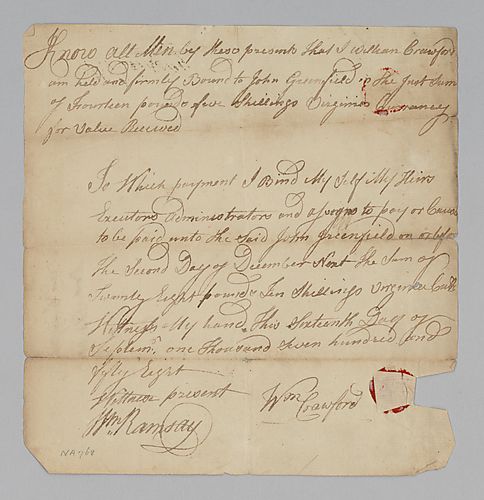 Know all Men by these present that I William Crawford
am held and firmly Bound to John Greenfield the Just Sum
of Fourteen pounds five Shillings Virginia Currancy
for Value Received
To Which payment I Bind My Self My Heirs
Executors administrators and assigns to pay or Cause
to be paid unto the Said John Greenfield on or before
The Second Day of December Next the Sum of
Twenty Eight pounds Ten Shillings Virginia
Witness My hand This Sixteenth Day of
Septem. one Thousand Seven hundred and
fifty Eight
Wittness present
Wm Crawford
Wm Ramsay
NA768